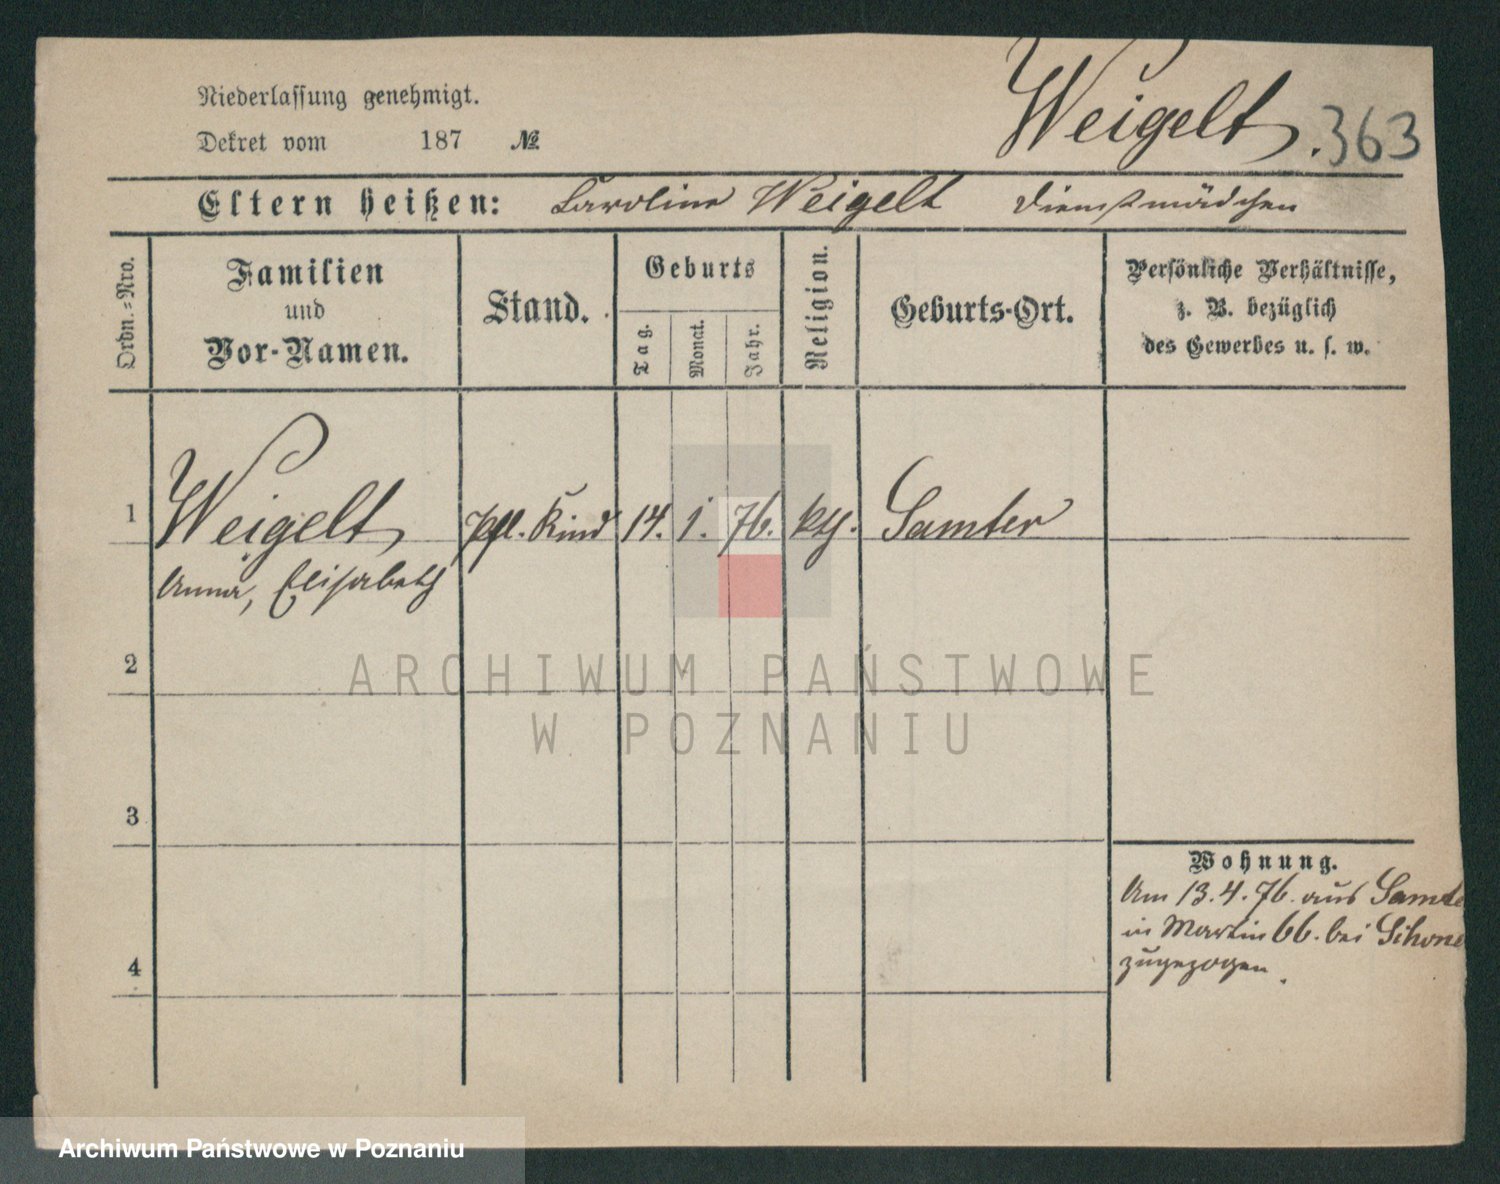 Niederlassung genehmigt.
Weigelt. 363
Dekret vom 187 №
Eltern heißen: Caroline Weigelt Dienstmädchen
Ordn.=Nro.
Familien
und
Vor-Namen.
Stand.
Geburts
Tag.
Monat.
Jahr.
Religion.
Geburts-Ort.
Persönliche Verhältnisse,
z. B. bezüglich
des Gewerbes u. s. w.
1 Weigelt pfl. Kind 14. 1. 76. kth. Samter
Anna, Elisabeth
2
ARCHIWUM PAŃSTWOWE
W POZNANIU
3
Wohnung.
Am 13.4.76. aus Samte
in Martin 66. bei
zugezogen.
4
Archiwum Państwowe w Poznaniu